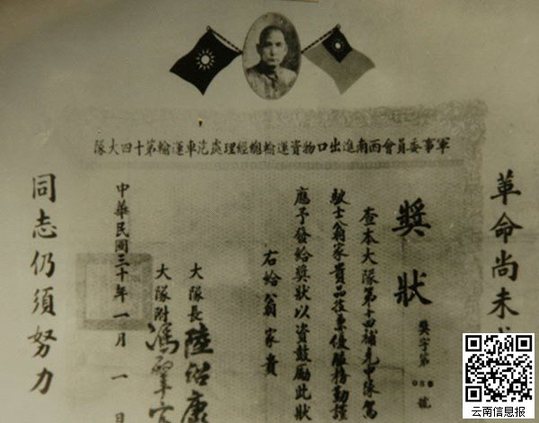 軍事委員會西南進出口物資運輸總經理處汽車運輸第十四大隊
革命尚未
獎狀
獎字第 號
查本大隊第十四補充中隊駕
駛士翁家貴品技業優服務勤謹
應予發給獎狀以資鼓勵此狀
右給翁家貴
大隊長 陸俗康
大隊附 馮
中華民國三十年一月一日
同志仍須努力
云南信息报